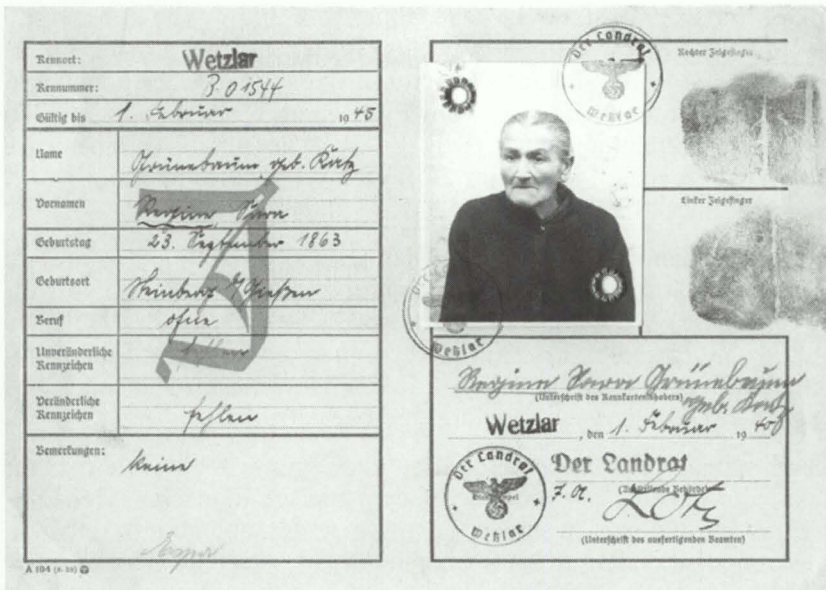 Kennort: Wetzlar
Kennummer: B.01544
Gültig bis 1. Februar 1945
Name Grünebaum geb. Katz
Vornamen Regine Sara
Geburtstag 23. September 1863
Geburtsort Steinberg b/Gießen
Beruf ohne
Unveränderliche Kennzeichen fehlen
Veränderliche Kennzeichen fehlen
Bemerkungen: keine
J
A 104 (8. 38)
Der Landrat
Wetzlar
Rechter Zeigefinger
Linker Zeigefinger
Wetzlar
Regine Sara Grünebaum
geb. Katz
(Unterschrift des Kennkarteninhabers)
Wetzlar, den 1. Februar 1940
Der Landrat
Wetzlar
Der Landrat
(Ausstellende Behörde)
J. A.
(Unterschrift des ausfertigenden Beamten)